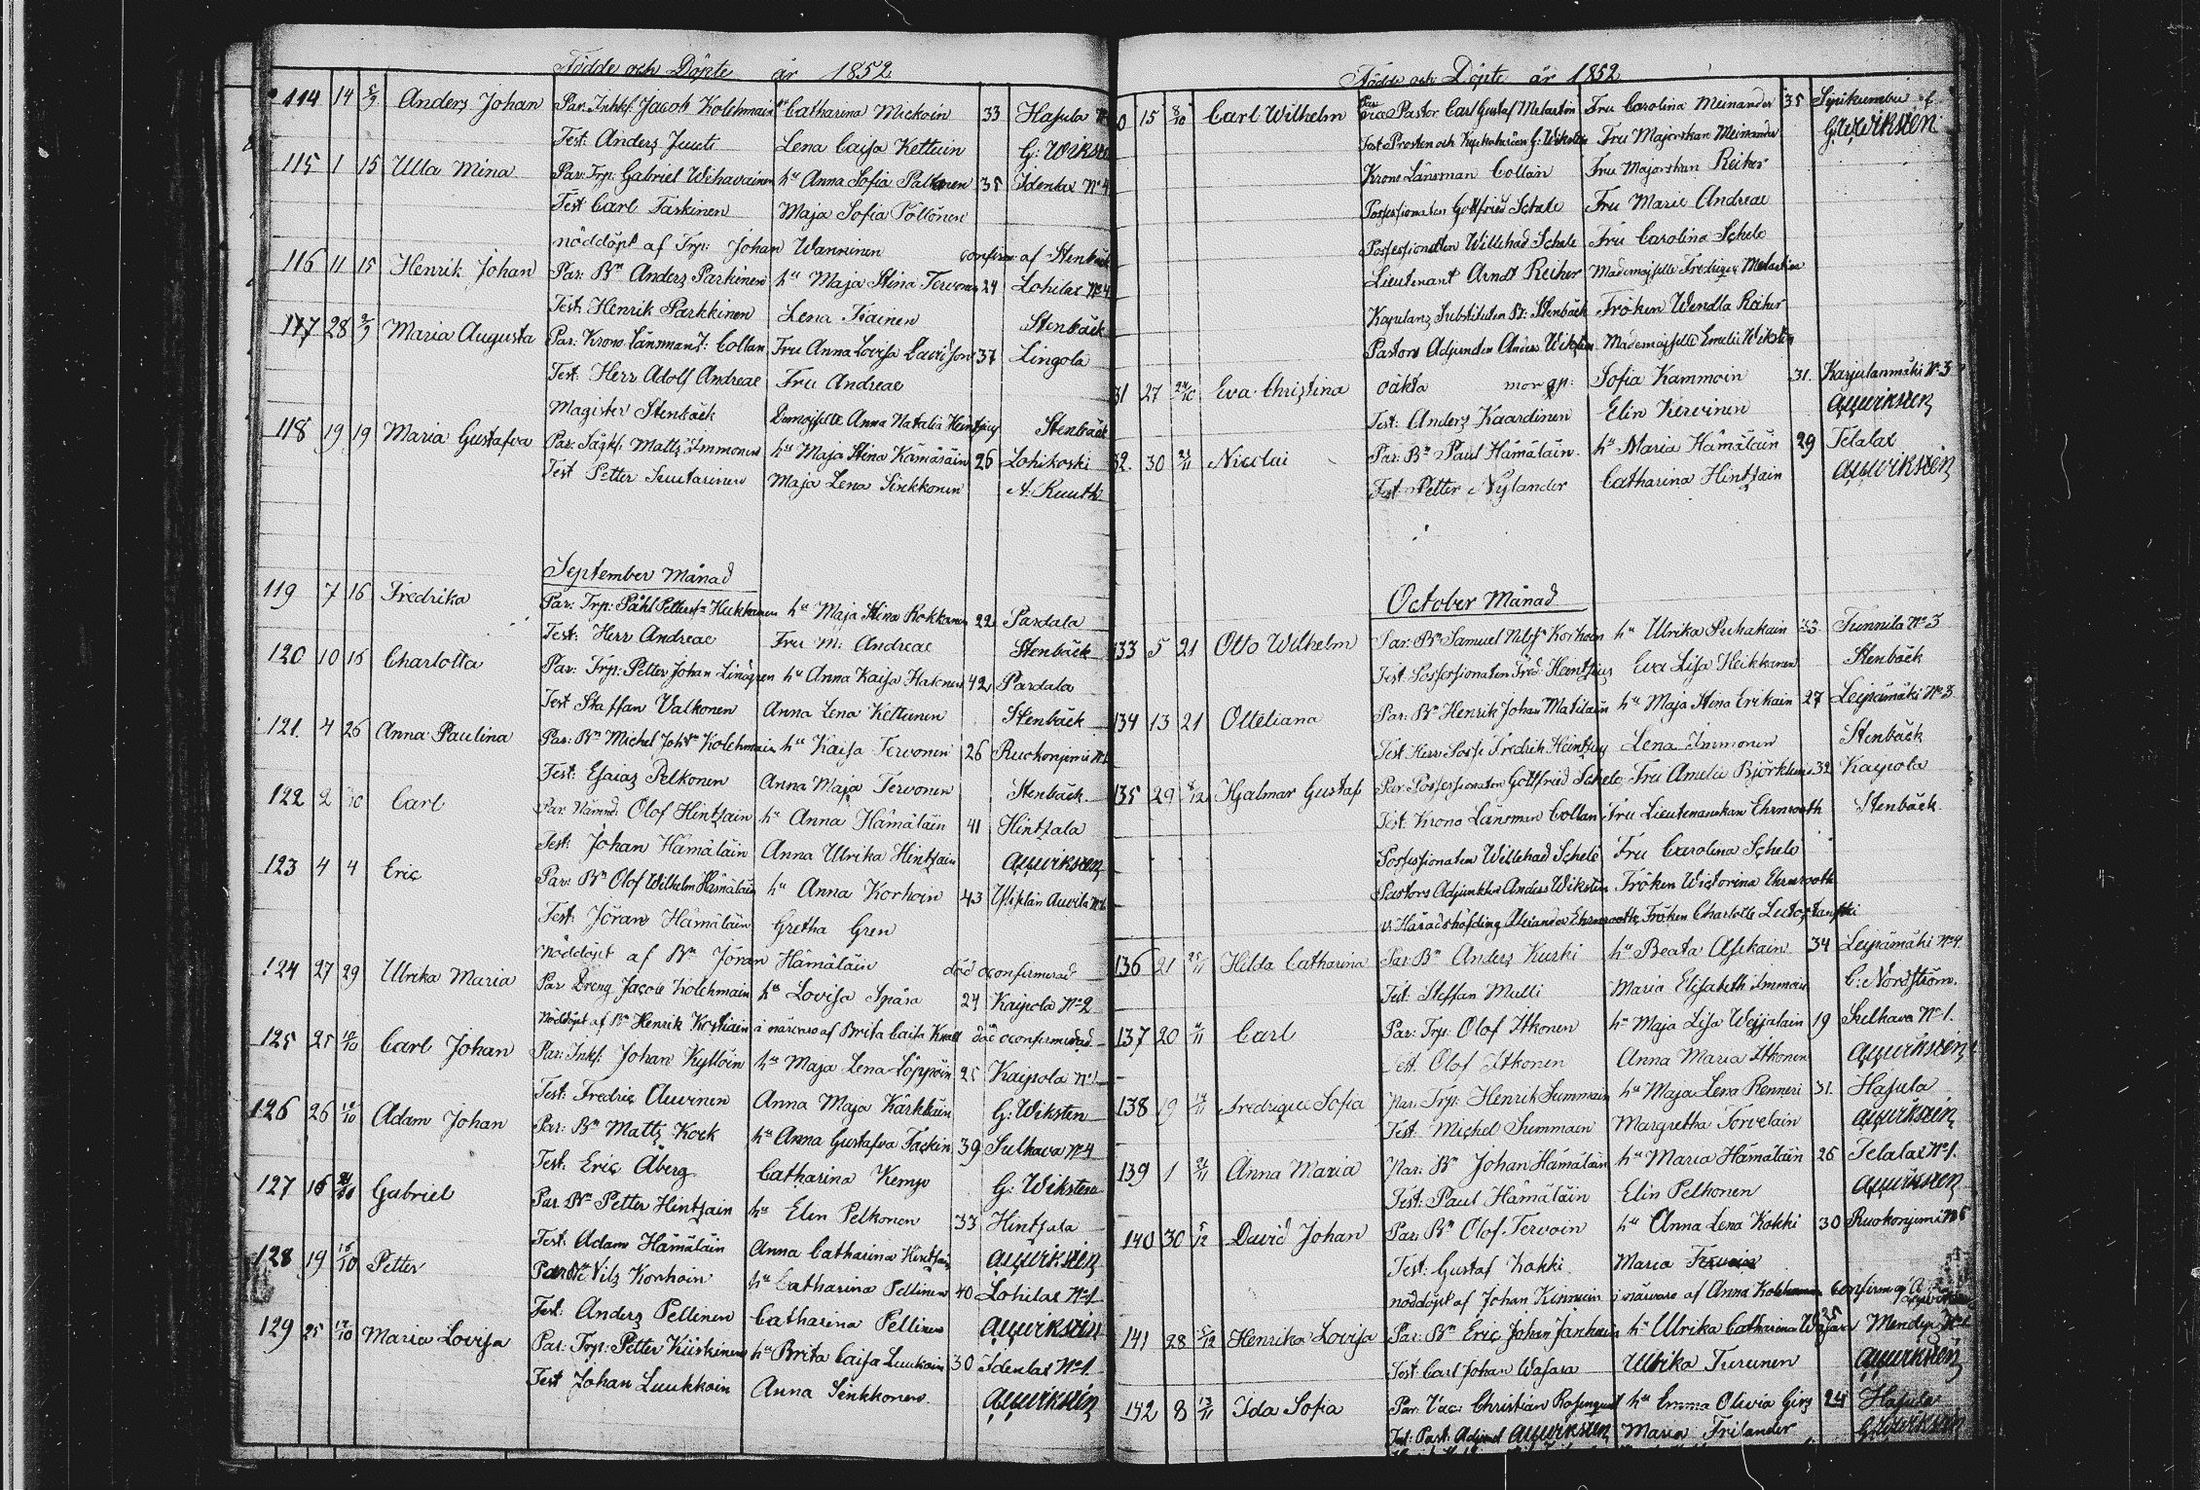 Födde och Döpte år 1852
114 14 5/9 Anders Johan Par: Inhkf: Jacob Kolehmain hu Catharina Mickoin 33 Hasula
Test: Anders Juuti Lena Caisa Kettuin G: Wiksten
115 1 15 Ulla Mina Par: Trp: Gabriel Wihavainen hu Anna Sofia Paltanen 35 Idenlax No 4
Test Carl Taskinen Maja Sofia Pöllönen
nöddöpt af Trp: Johan Wanninen confirm: af Stenbäck
116 11 15 Henrik Johan Par: Bn Anders Parkinen hu Maja Stina Tervonen 24 Lohilax No 4
Test: Henrik Parkkinen Lena Tiainen Stenbäck
117 28 2/9 Maria Augusta Par: Krono Länsman J: Collan Fru Anna Lovisa 37 Lingola
Test: Herr Adolf Andreae Fru Andreae
Magister Stenbäck Anna Natalia Stenbäck
118 19 19 Maria Gustafva Par: Matts Immonen hu Maja Stina Kämäräin 26 Lohikoski
Test Petter Suutarinen Maja Lena Sinkkonen A: Ruuth
September Månad
119 7 16 Fredrika Par: Trp: Påhl Petterss: Heikkinen hu Maja Stina Kokkonen 22 Pardala
Test: Herr Andreae Fru M: Andreae Stenbäck
120 10 16 Charlotta Par: Trp: Petter Johan Lindgren hu Anna Kaisa Hakonen 42 Pardala
Test Staffan Valkonen Anna Lena Kettunen Stenbäck
121. 4 26 Anna Paulina Par: Bn Michel Kolehmain hu Kaisa Tervonen 26 Ruokoniemi No 1
Test: Esaias Pelkonen Anna Maja Tervonen Stenbäck
122 2 Carl Par: Nämnd: Olof Hintsain hu Anna Hämäläin 41 Hintsala
Test: Johan Hämäläin Anna Ulrika Hintsain Wiksten
123 4 4 Eric Par: Bn Olof Wilhelm Hämäläin hu Anna Korhoin 43 Auvila No 1
Test: Jöran Hämäläin Gretha Gren
Nöddöpt af Bn Jöran Hämäläin död oconfirmerad
124 27 29 Ulrika Maria Par Dreng Jacob Kolehmain hu Lovisa Spåra 24 Kaipola No 2
Nöddöpt af Bn Henrik i närvaro af Brita Caisa död oconfirmerad
125 25 10/10 Carl Johan Par: Inhf: Johan Kyllöin hu Maja Lena Löppöin 25 Kaipola No 1
Test: Fredric Auvinen Anna Maja Kärkkäin G: Wiksten
126 26 10/10 Adam Johan Par: Bn Matts Kock hu Anna Gustafva Tackin 39 Sulkava No 4
Test: Eric Åberg Catharina Kemp G: Wiksten
127 16 Gabriel Par Bn Petter Hintsain hu Elin Pelkonen 33 Hintsala
Test: Adam Hämäläin Anna Catharina Hintsain Wiksten
128 19 16/10 Petter Par Bn Nils Korhoin hu Catharina Pellinen 40 Lohilax No 1
Test: Anders Pellinen Catharina Pellinen Wiksten
129 25 17/10 Maria Lovisa Par: Trp: Petter Kiiskinen hu Brita Caisa Luukoin 30 Idenlax No 1.
Test Johan Luukkoin Anna Sinkkonen. Wiksten
Födde och Döpte år 1852
0 15 8/10 Carl Wilhelm Par Vice Pastor Carl Gustaf Melartin Fru Carolina Meinander 35 Sipikumbu af
Test Prosten och Kyrkoherden G: Wiksten Fru Majorskan Meinander G: Wiksten
Krono Länsman Collan Fru Majorskan Reiher
Possessionaten Gottfried Schele Fru Marie Andreae
Possessionaten Willehad Schele Fru Carolina Schele
Lieutenant Arndt Reiher Mademoiselle Fredrique Melartin
Kapulans Substituten Br: Stenbäck Fröken Wendla Reiher
Pastors Adjuncten Anders Wiksten Mademoiselle Emelie Wiksten
31 27 24/10 Eva Christina oäkta mor qp: Sofia Kammoin 31. Karjulanmäki No 3
Test: Anders Kaardinen Elin Kervinen Wiksten
32. 30 21/11 Nicolai Par: Bn Paul Hämäläin hu Maria Hämäläin 29 Telalax
Test Petter Nylander Catharina Hintsain Wiksten
October Månad
133 5 21 Otto Wilhelm Par: Bn Samuel Korhoin hu Ulrika Puhakain 33 Tunnila No 3
Test: Possessionaten Fred: Eva Lisa Heikkanen Stenbäck
134 13 21 Otteliana Par: Bn Henrik Johan Matilain hu Maja Stina Erikain 27 Leipämäki No 3
Test Herr Poss: Fredrik Lena Immonen Stenbäck
135 29 Hjalmar Gustaf Par: Possessionaten Gottfried Schele Fru Amelie Björklund 32 Kaipola
Test: Krono Länsman Collan Fru Lieutenanskan Ehrnrooth Stenbäck
Possessionaten Willehad Schele Fru Carolina Schele
Pastors Adjunkten Anders Wiksten Fröken Wictorina Ehrnrooth
v: Häradshöfding Alexander Ehrnrooth Fröken Charlotte
136 21 Hilda Catharina Par: Bn Anders Kuski hu Beata Asikain 34 Leipämäki No 4
Test: Steffan Mulli Maria Elisabeth Immoin C: Nordström.
137 20 Carl Par: Trp: Olof Itkonen hu Maja Lisa Weijalain 19 Sulkava No 1.
Test: Olof Itkonen Anna Maria Itkonen Wiksten
138 19 Fredrique Sofia Par: Trp: Henrik Summain hu Maja Lena Renneri 31. Hasula
Test: Michel Summain Margretha Torvelain Wiksten
139 1 Anna Maria Par: Bn Johan Hämäläin hu Maria Hämäläin 26 Telalax No 1.
Test: Paul Hämäläin Elin Pelkonen Wiksten
140 30 5/12 David Johan Par: Bn Olof Tervoin hu Anna Lena Kokki 30 Ruokoniemi No 5
Test: Gustaf Kokki Maria Tervoin
nöddöpt af Johan Kinnuin i närvaro af Anna Kolehmain confirm af
141 28 5/12 Henrika Lovisa Par: Bn Eric Johan Janhuin hu Ulrika Catharina Wasara 35 No 1
Test Carl Johan Wasara Ulrika Turunen Wiksten
142 8 13/11 Ida Sofia Par: Christian Rosenqvist hu Emma Olivia Girs 24 Hasula
Test: Past: Adjunct Wiksten Maria Frilander G: Wiksten